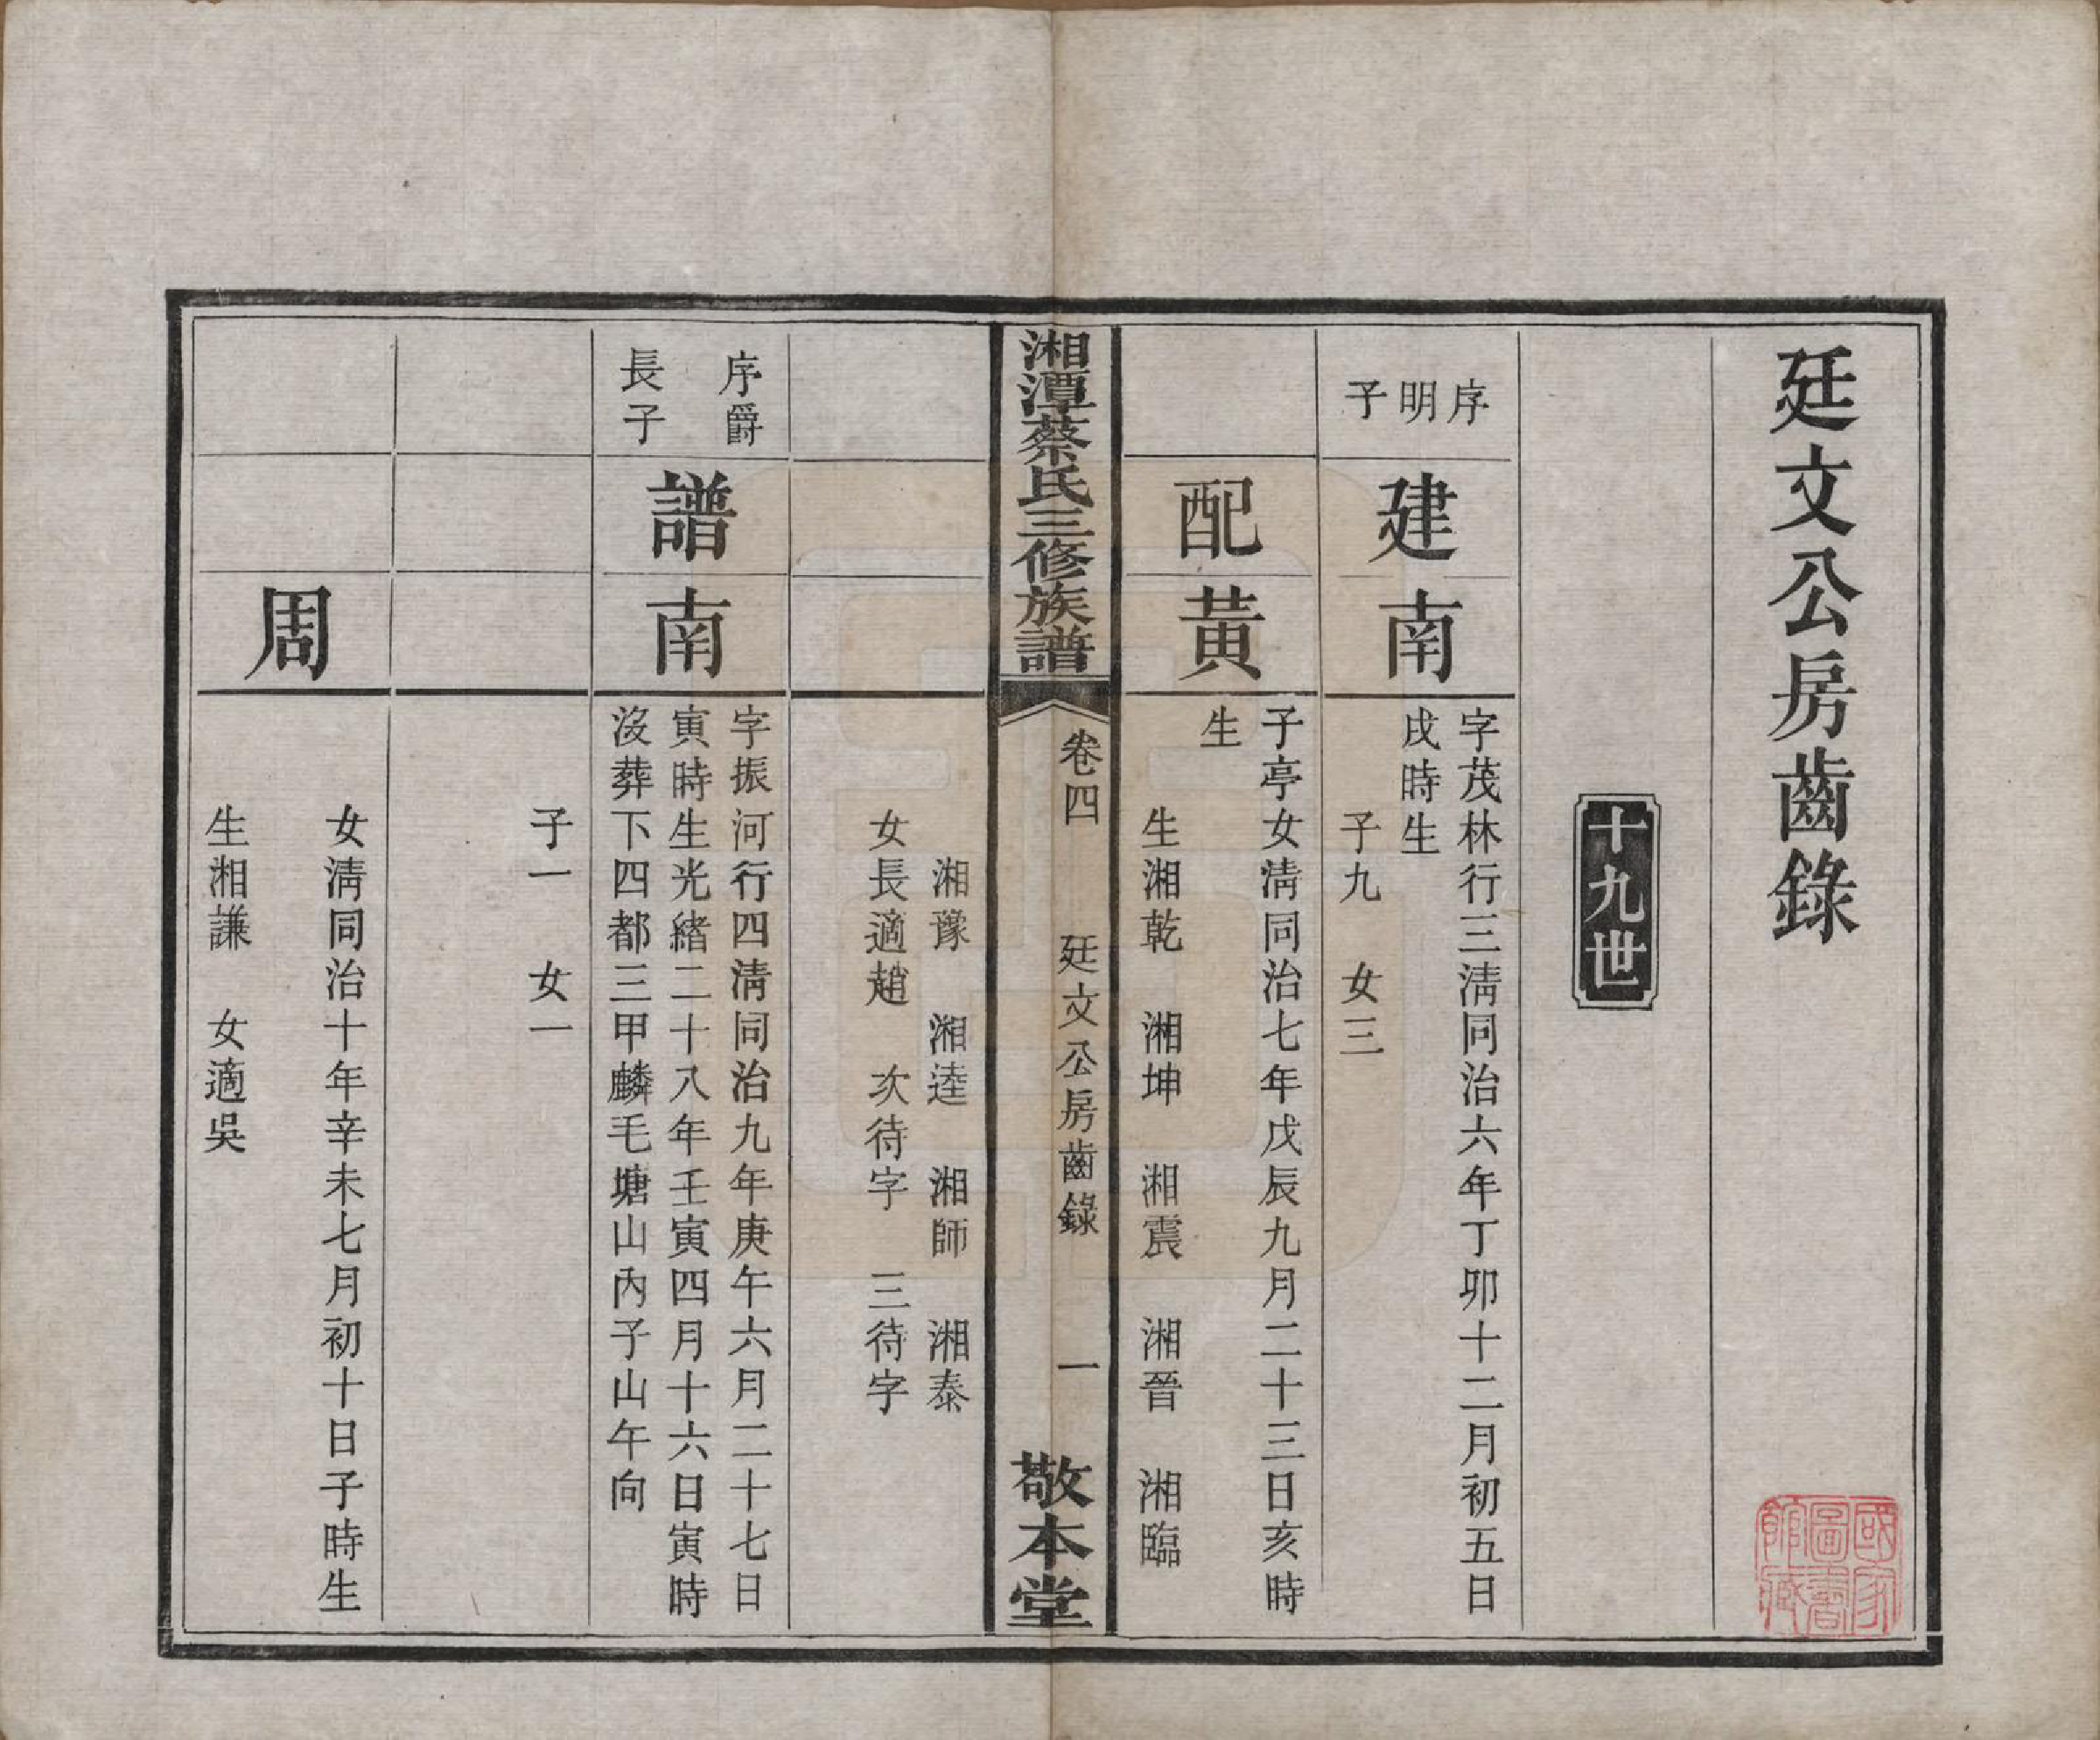 廷文公房齒錄
十九世
序明子
建南
字茂林行三淸同治六年丁卯十二月初五日
戌時生
子九 女三
配黃
子亭女淸同治七年戊辰九月二十三日亥時
生
生湘乾 湘坤 湘震 湘晉 湘臨
湘潭蔡氏三修族譜
卷四 廷文公房齒錄 一
敬本堂
湘豫 湘逵 湘師 湘泰
女長適趙 次待字 三待字
序爵
長子
譜南
字振河行四淸同治九年庚午六月二十七日
寅時生光緒二十八年壬寅四月十六日寅時
沒葬下四都三甲麟毛塘山內子山午向
子一 女一
周
女淸同治十年辛未七月初十日子時生
生湘謙 女適吳
國家圖書館藏